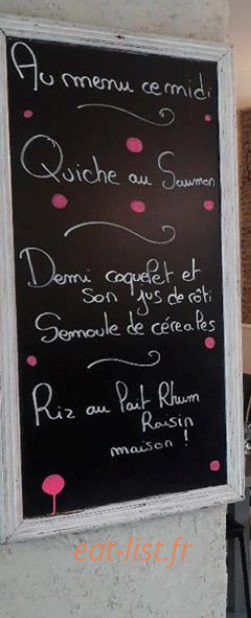 Au menu ce midi
Quiche au Saumon
Demi coquelet et
son jus de rôti
Semoule de céréales
Riz au lait Rhum
Raisin
maison !
eat-list.fr